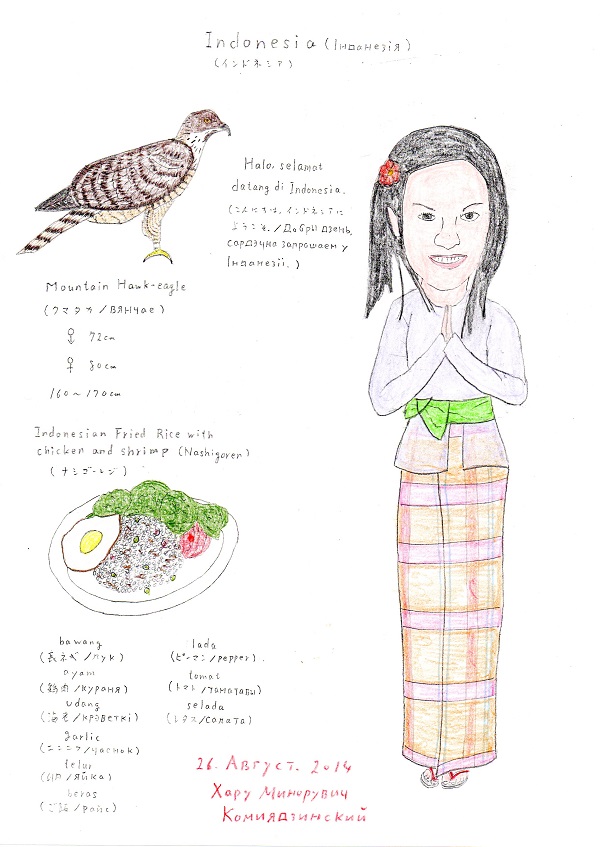 Indonesia (Інданезія)
(インドネシア)
Halo, selamat
datang di Indonesia.
(こんにちは、インドネシアに
ようこそ。/Добры дзень,
сардэчна запрошаем у
Інданезіі.)
Mountain Hawk-eagle
(クマタカ/вянчае)
♂ 72cm
♀ 80cm
160~170cm
Indonesian Fried Rice with
chicken and shrimp (Nashigoren)
(ナシゴーレン)
bawang
(長ネギ/лук)
ayam
(鶏肉/кураня)
udang
(海老/крэветкі)
garlic
(ニンニク/часнок)
telur
(卵/яйка)
beras
(ご飯/райс)
lada
(ピーマン/pepper).
tomat
(トマト/таматавы)
selada
(レタス/салата)
26. Август. 2014
Хару Минорувич
Комиядзинский